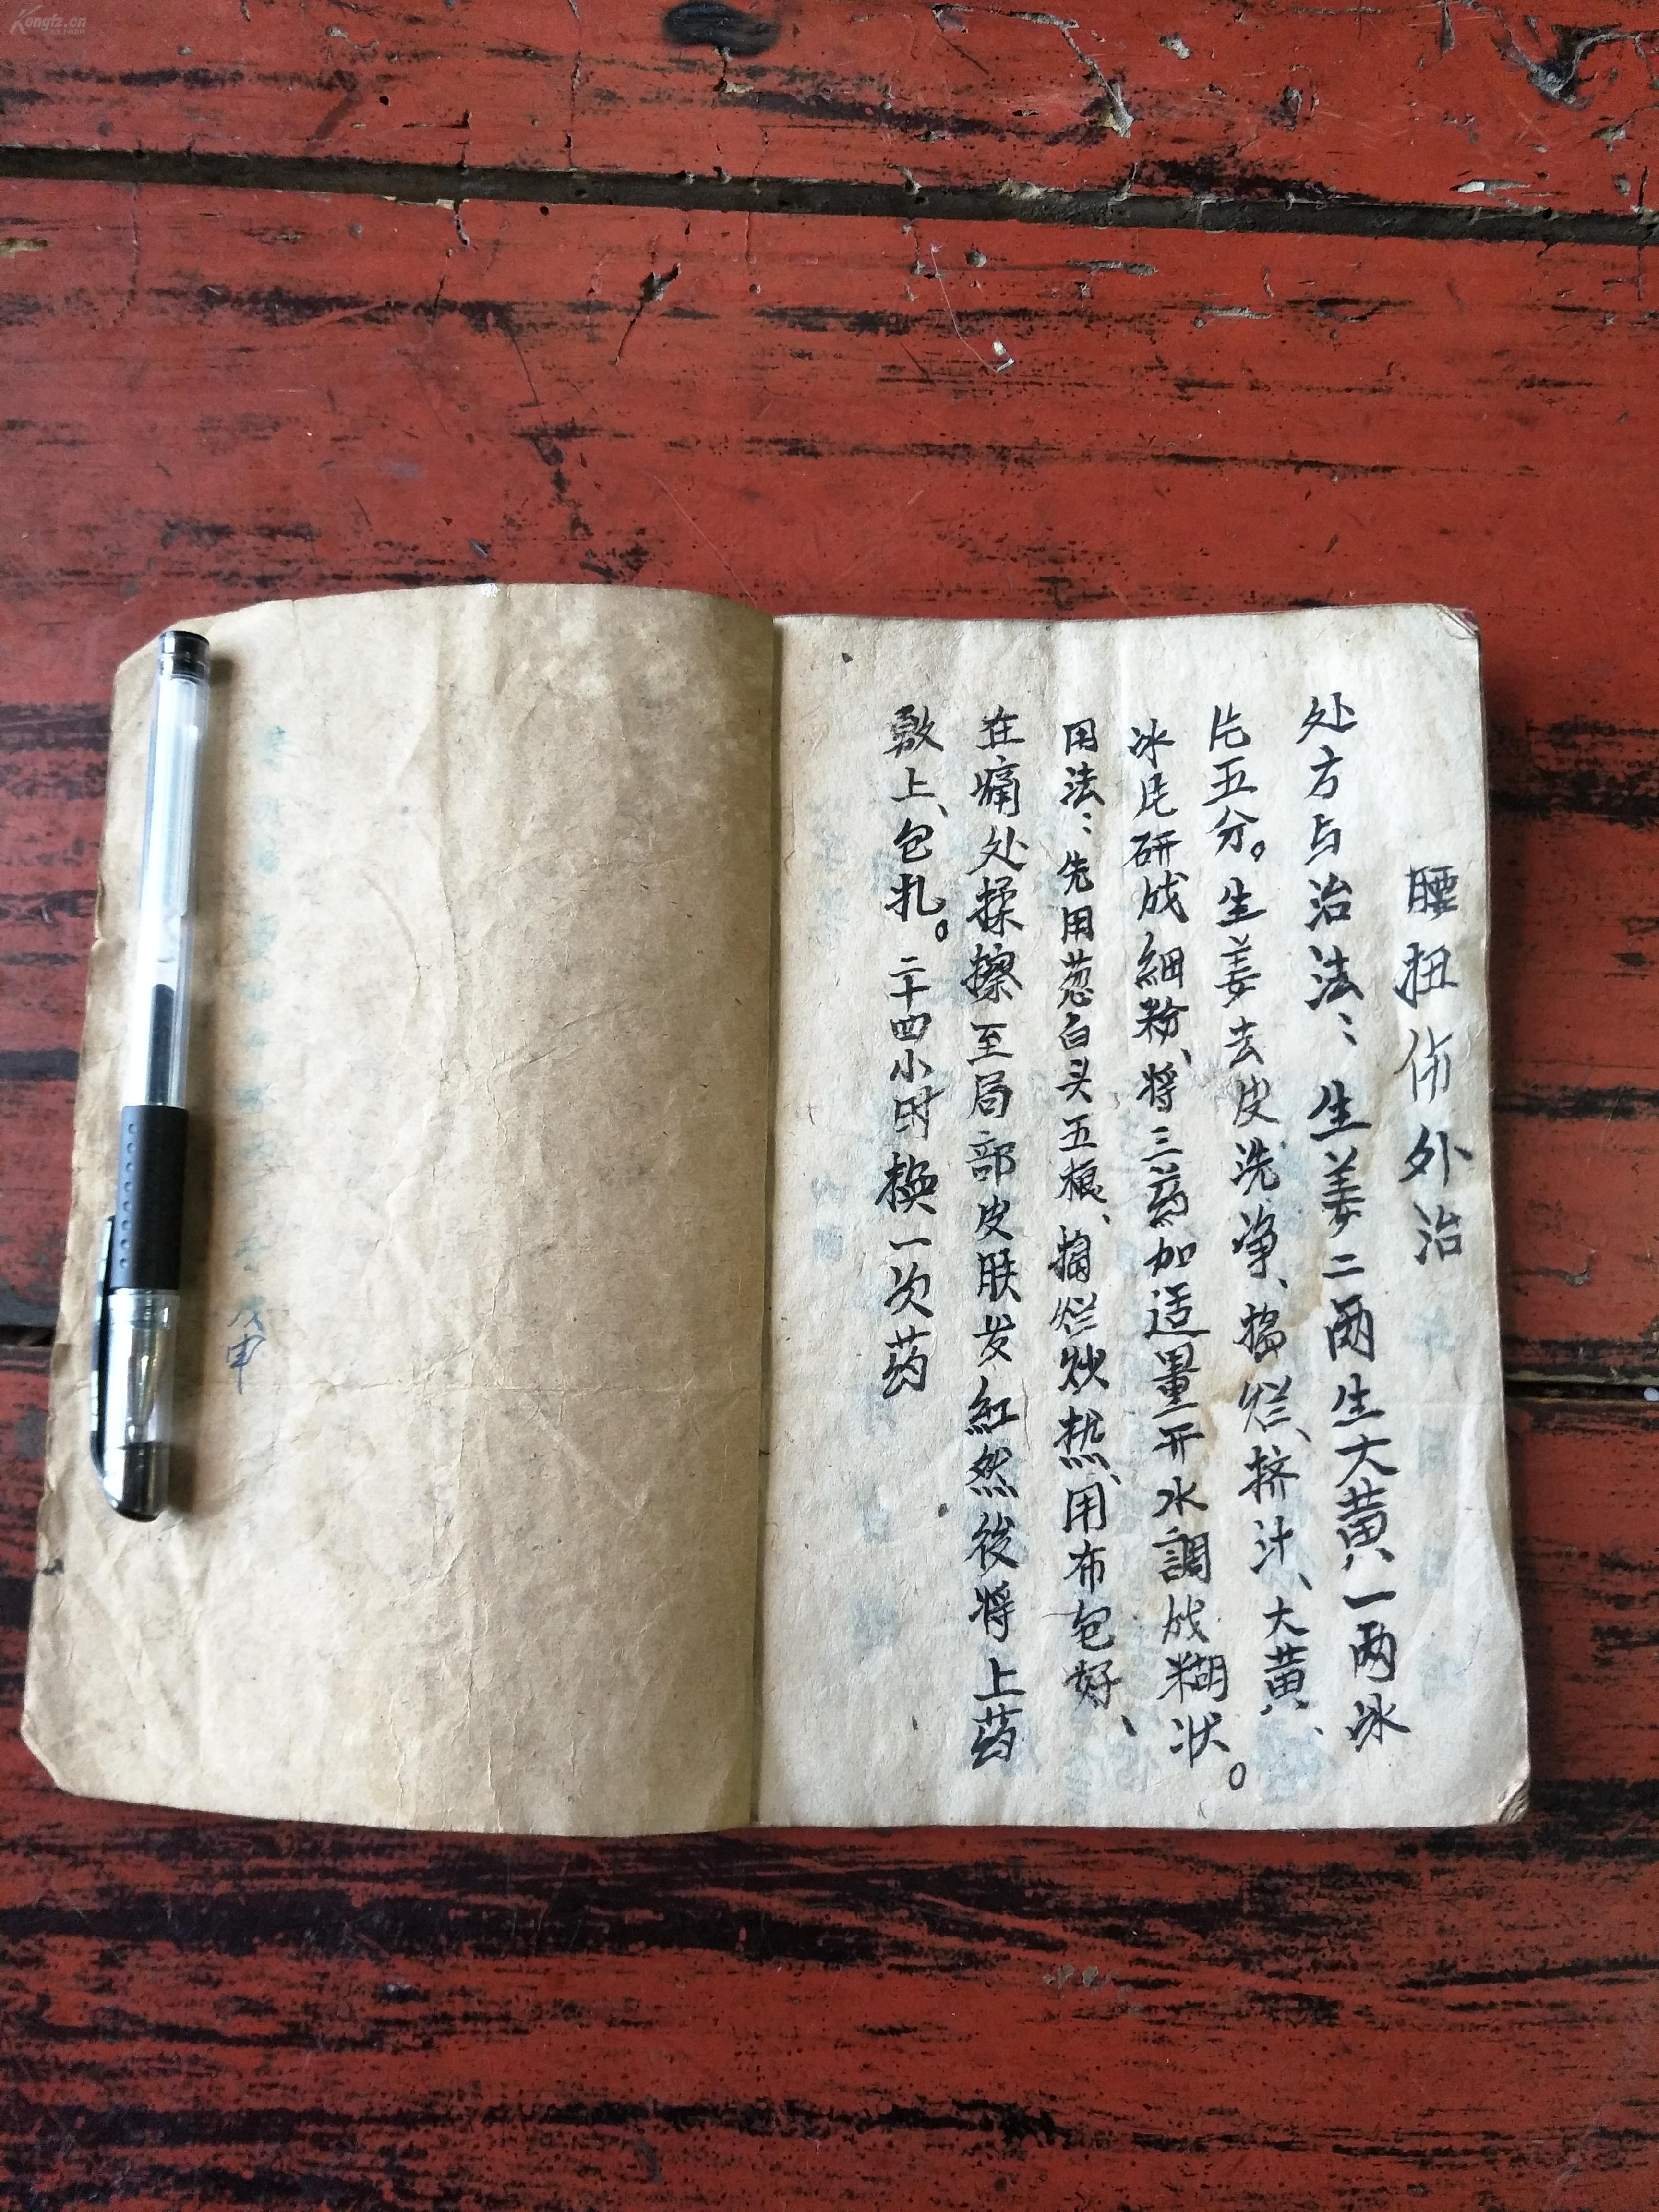 腰扭伤外治
处方与治法：生姜二两生大黄一两冰
片五分。生姜去皮洗净、捣烂、挤汁、大黄、
冰片研成細粉、将三药加适量开水調成糊状。
用法：先用葱白头五根、捣烂炒热、用布包好、
在痛处揉擦至局部皮肤发紅然後将上药
敷上、包扎。二十四小时换一次药
戊申
Kongfz.cn